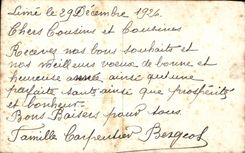 Limé le 29 Décembre 1926.
Chers Cousins et Cousines
Recevez nos bons souhaits et
nos meilleurs voeux de bonne et
heureuse année ainsi qu'une
parfaite santé ainsi que prospérité
et bonheur.
Bons Baisers pour tous.
Famille Carpentier Bergeot